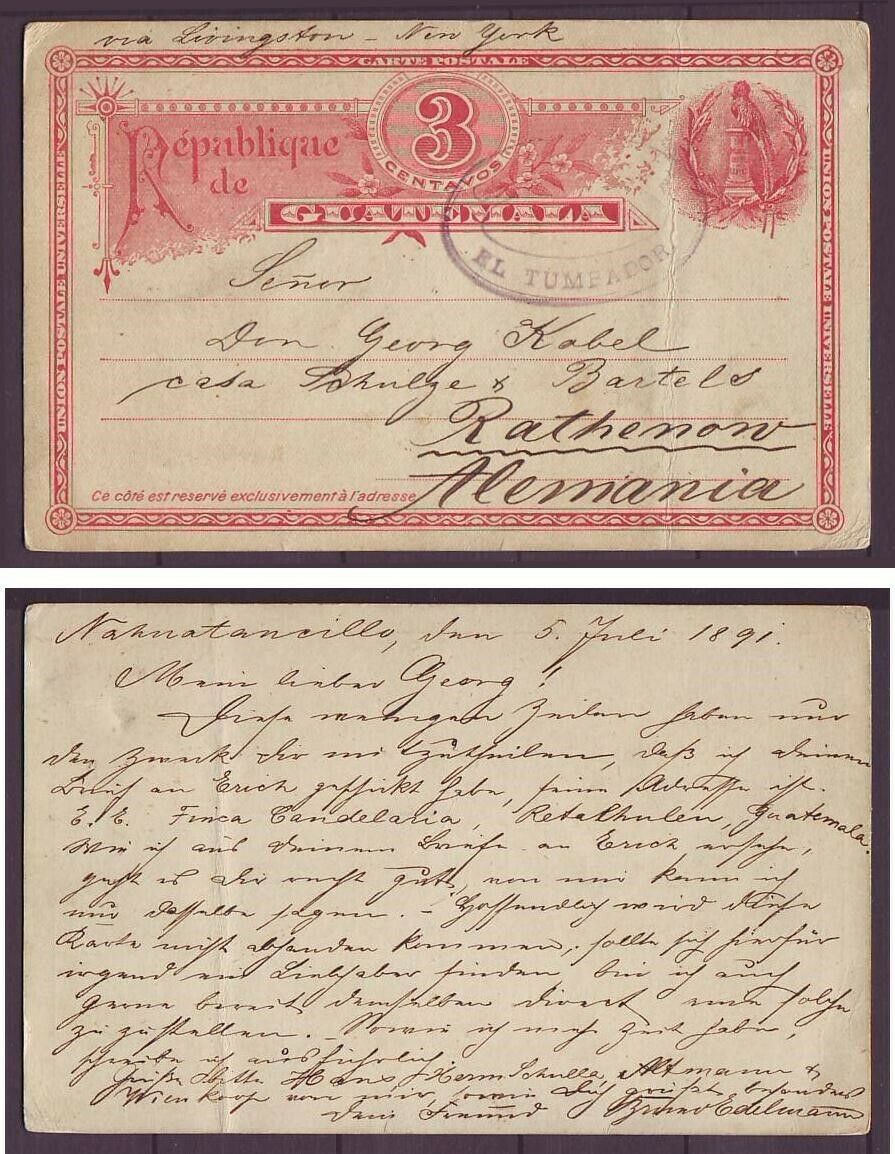 via Livingston - New York
CARTE POSTALE
UNION POSTALE UNIVERSELLE
UNION POSTALE UNIVERSELLE
République
de
3
CENTAVOS
GUATEMALA
EL TUMBADOR
Señor
Don Georg Kobel
casa Schulze & Bartels
Rathenow
Alemania
Ce côté est reservé exclusivement à l'adresse
Nahuatancillo, den 5. Juli 1891.
Mein lieber Georg!
Diese wenigen Zeilen haben nur
den Zweck dir mitzutheilen, daß ich deinen
Brief an Erich geschickt habe, seine Adresse ist.
E. E. Finca Candelaria, Retalhulen, Guatemala.
Wie ich aus deinem Briefe an Erich ersehe,
geht es dir recht gut, von mir kann ich
nur dasselbe sagen. - Hoffendlich wird diese
Karte nicht abhanden kommen; sollte sich hierfür
irgend ein Liebhaber finden bin ich auch
gerne bereit demselben direct eine solche
zuzustellen. - Sowie ich mehr Zeit habe,
schreibe ich ausführlich.
Grüße bitte Hans, Herm Schulla, Altmann &
von mir, sowie Dich grüßt besonders
dein Freund Bruno Edelmann